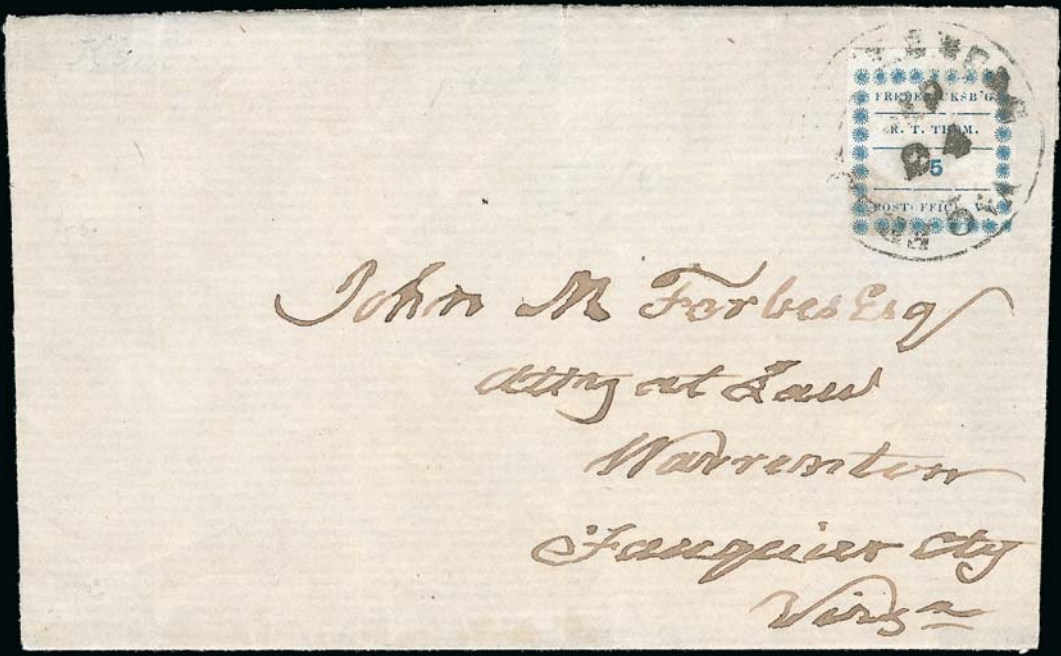 FREDERICKSB'G
R. T. THOM.
5
POST OFFICE, VA.
24
John M Forbes Esq
Atty at Law
Warrenton
Fauquier Cty
Virgᵃ